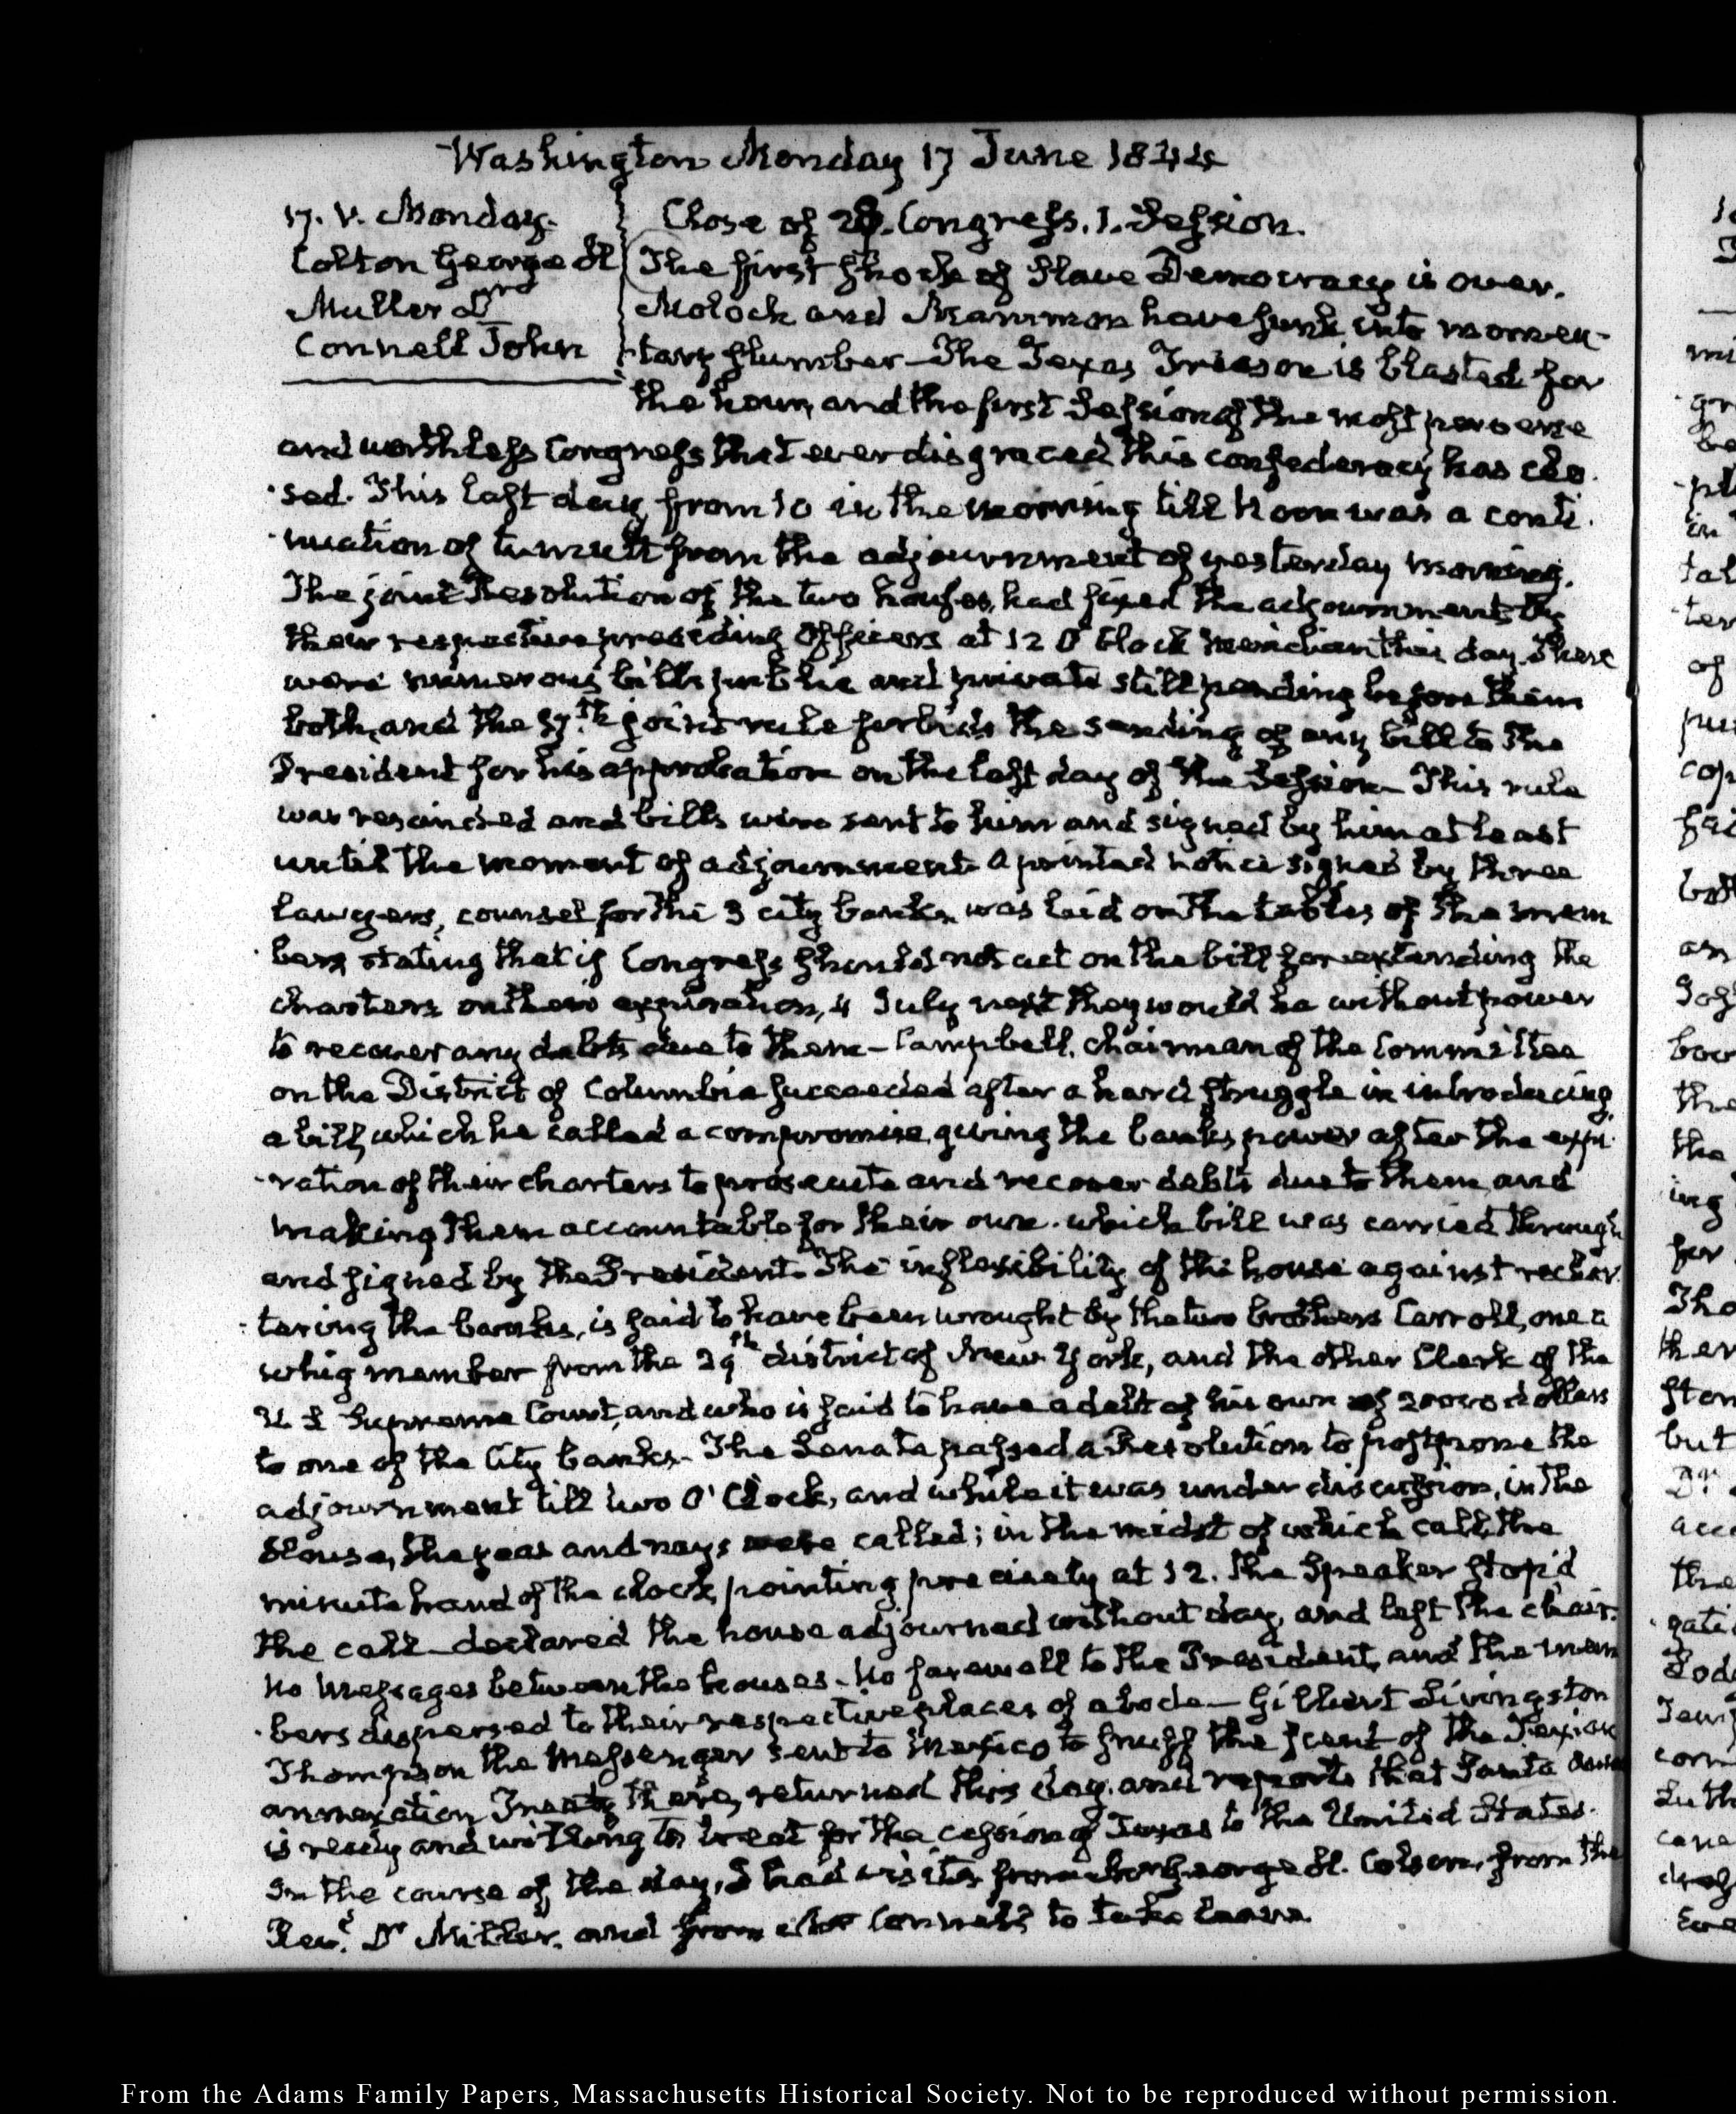 Washington Monday 17 June 1844
17. V. Monday.
Colton George H
Muller Dr
Connell John
Close of 28. Congress. 1. Session.
The first shock of Slave Democracy is over.
Moloch and Mammon have sunk into momen-
tary slumber — The Texas Treason is blasted for
the hour, and the first Session of the most perverse
and worthless Congress that ever disgraced this confederacy has clo-
-sed. This last day from 10 in the morning till Noon was a conti-
-nuation of tumult from the adjournment of yesterday morning.
The joint Resolution of the two houses, had fixed the adjournment by
their respective presiding Officers at 12 O'Clock meridian this day. There
were numerous bills public and private still pending before them
both, and the 17.th joint rule forbids the sending of any bill to the
President for his approbation on the last day of the Session — This rule
was rescinded and bills were sent to him and signed by him at least
until the moment of adjournment. A printed notice signed by three
lawyers, counsel for the 3 city banks, was laid on the tables of the mem
-bers stating that if Congress should not act on the bill for extending the
charters on their expiration, 4 July next they would be without power
to recover any debts due to them — Campbell, chairman of the Committee
on the District of Columbia succeeded after a hard struggle in introducing
a bill, which he called a compromise, giving the banks power after the expi-
-ration of their charters to prosecute and recover debts due to them, and
making them accountable for their own. which bill was carried through
and signed by the President. The inflexibility of the house against rechar-
-tering the banks, is said to have been wrought by the two brothers Carroll, one a
whig member from the 29th district of New York, and the other Clerk of the
U. S Supreme Court, and who is said to have a debt of his own of 20000 dollars
to one of the City banks — The Senate passed a Resolution to postpone the
adjournment till two O'Clock, and while it was under discussion, in the
House, the yeas and nays were called; in the midst of which call, the
minute hand of the clock, pointing precisely at 12. the Speaker stop'd
the call — declared the house adjourned without day, and left the chair.
No messages between the houses — No farewell to the President, and the mem
-bers dispersed to their respective places of abode — Gilbert Livingston
Thompson the Messenger sent to Mexico to snuff the scent of the Texian
annexation Treaty there, returned this day, and reports that Santa Anna
is ready and willing to treat for the cession of Texas to the United States.
In the course of the day, I had visits from George H. Colton, from the
Revd. Dr Miller, and from Connell to take leave.
From the Adams Family Papers, Massachusetts Historical Society. Not to be reproduced without permission.